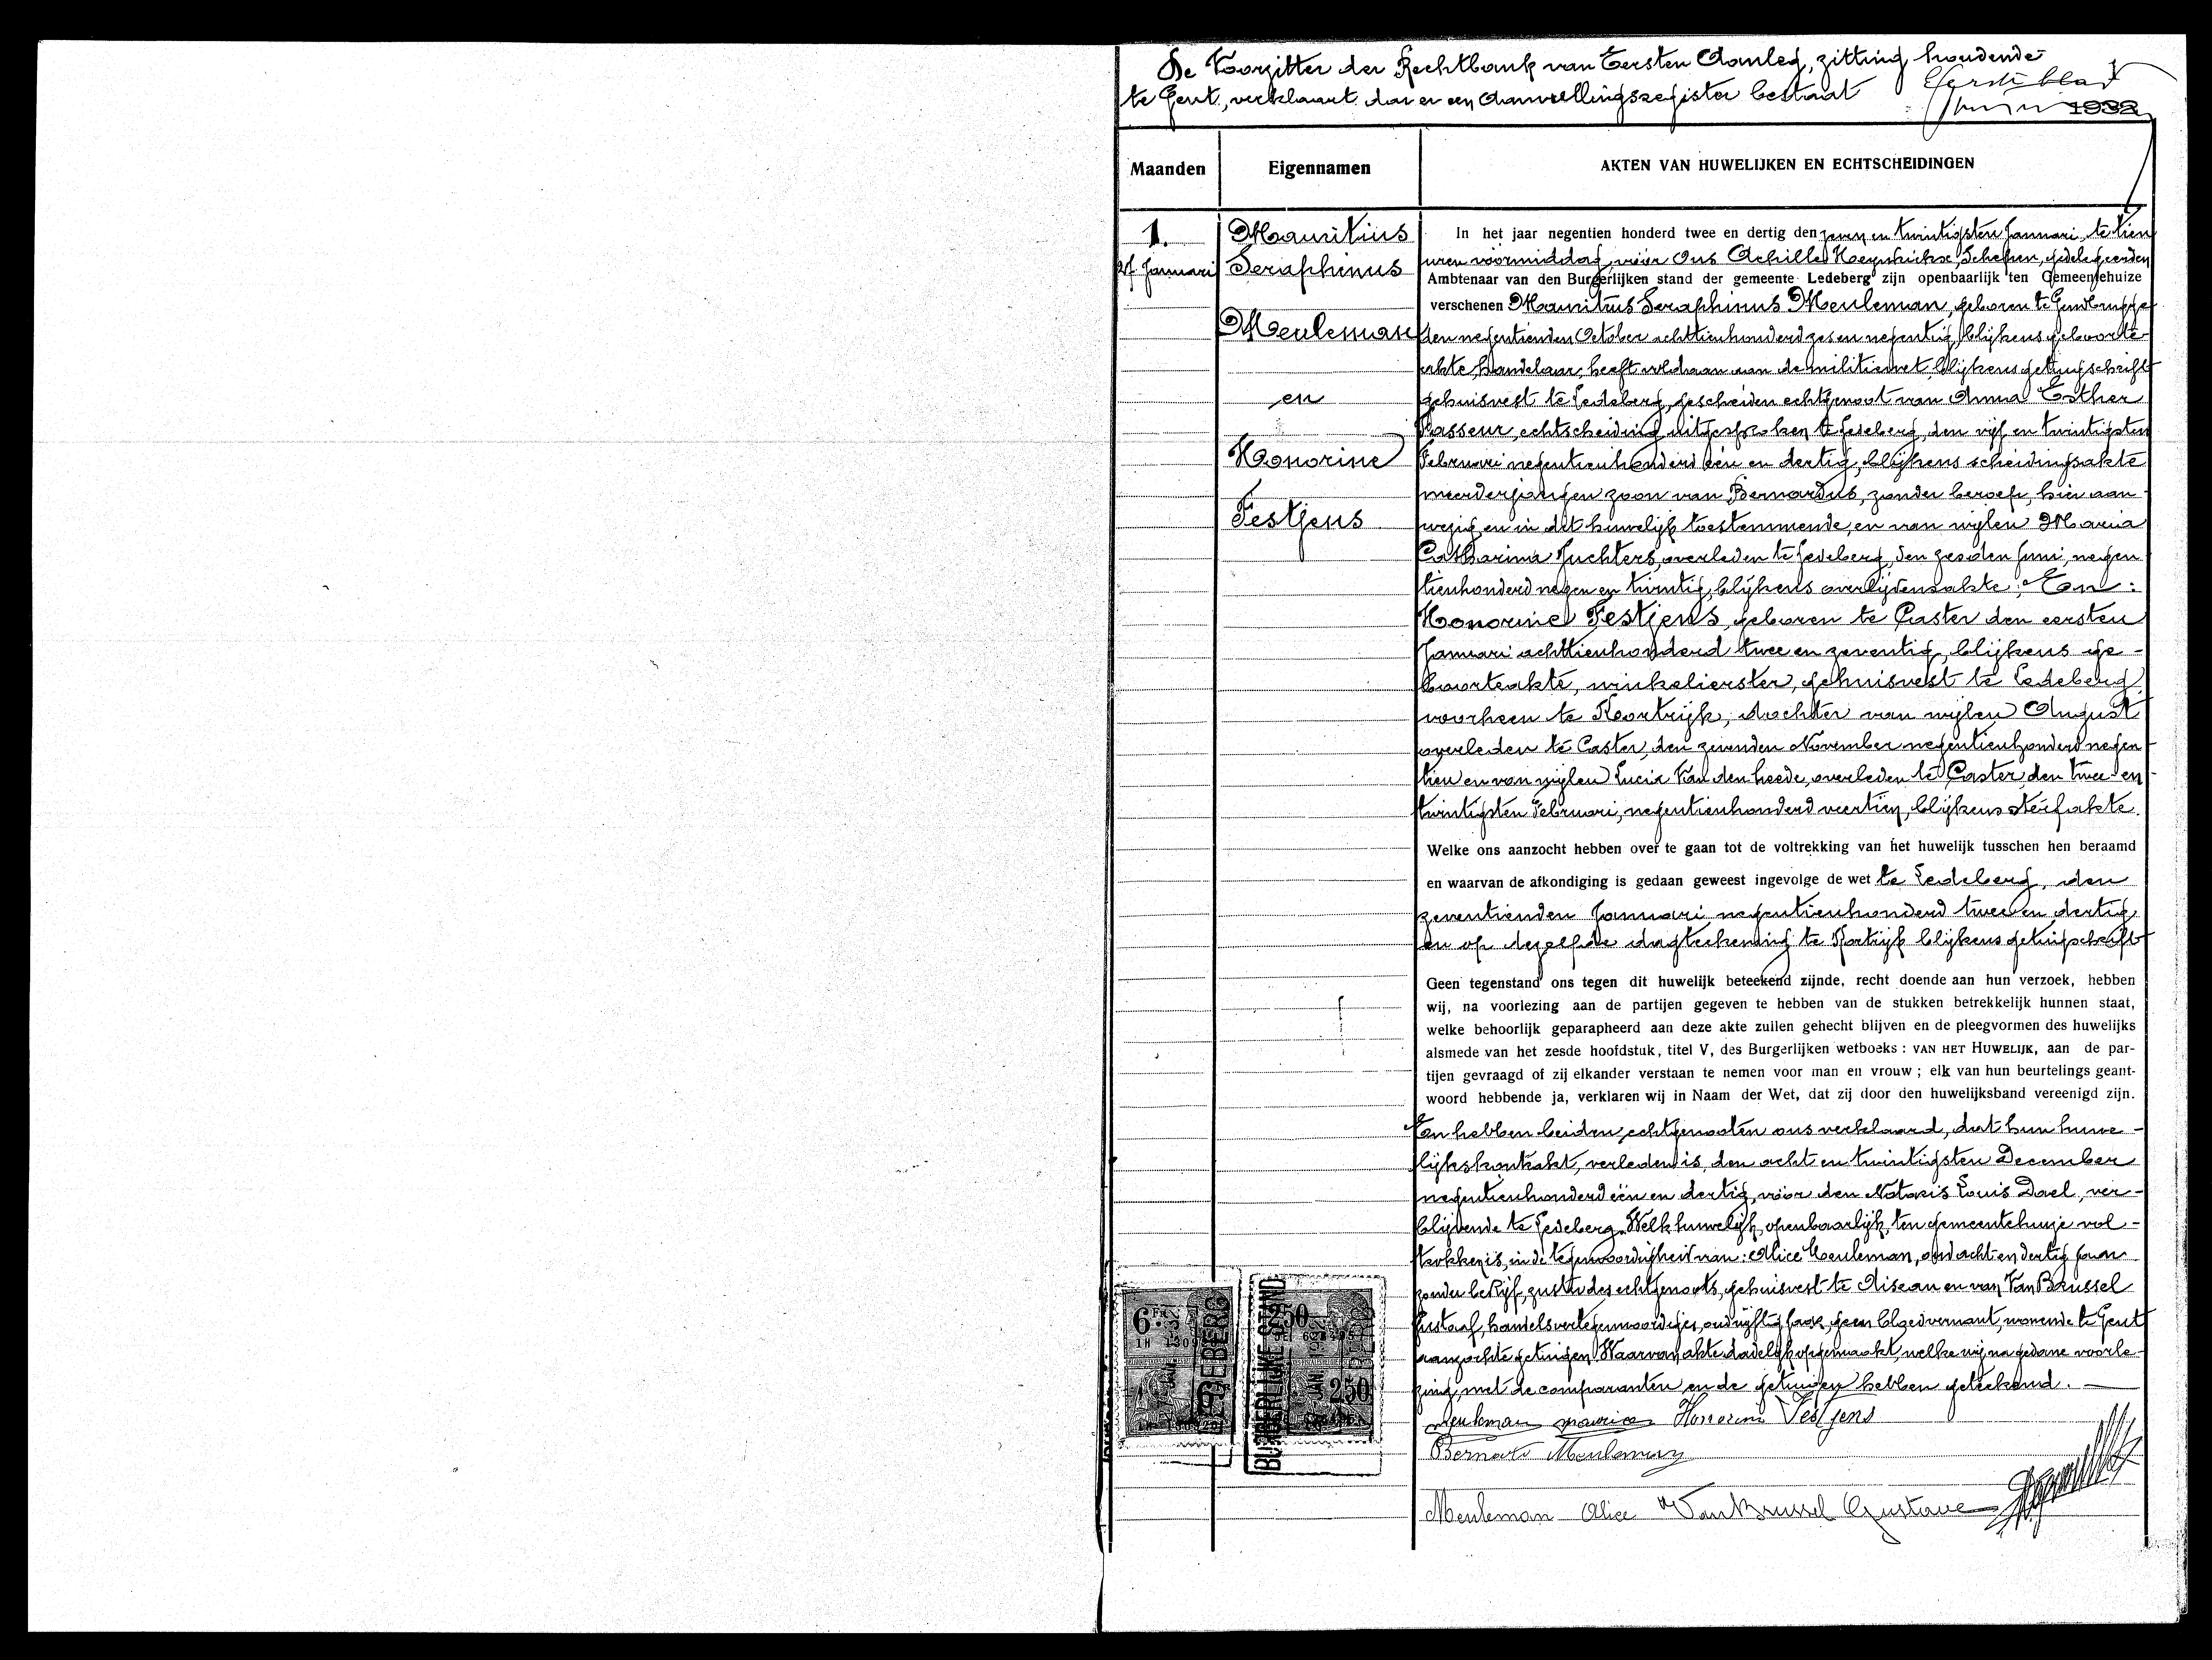 De Voorzitter der Rechtbank van Eersten Aanleg, zitting houdende
te Gent, verklaart dat er een Aanvullingsregister bestaat
Eerste blad
1932
Maanden
Eigennamen
AKTEN VAN HUWELIJKEN EN ECHTSCHEIDINGEN
1.
27 Januari
Mauritius
Seraphinus
Meuleman
en
Honorine
Festjens
In het jaar negentien honderd twee en dertig den zeven en twintigsten Januari, te tien
uren voormiddag, vóór Ons Achille Schepen, gedelegeerden
Ambtenaar van den Burgerlijken stand der gemeente Ledeberg zijn openbaarlijk ten Gemeentehuize
verschenen Mauritius Seraphinus Meuleman, geboren te Gentbrugge
den negentienden October achttienhonderd zes en negentig, blijkens geboorte-
akte, handelaar, heeft voldaan aan de militiewet, blijkens getuigschrift
gehuisvest te Ledeberg, gescheiden echtgenoot van Anna Esther
Passeur, echtscheiding uitgesproken te Ledeberg, den vijf en twintigsten
Februari negentienhonderd één en dertig, blijkens scheidingsakte
meerderjarigen zoon van Bernardus, zonder beroep, hier aan-
wezig en in dit huwelijk toestemmende, en van wijlen Maria
Catharina Juchters, overleden te Ledeberg, den zesden Juni, negen
tienhonderd negen en twintig, blijkens overlijdensakte. En:
Honorine Festjens, geboren te Caster den eersten
Januari achttienhonderd twee en zeventig, blijkens ge-
boorteakte, winkelierster, gehuisvest te Ledeberg
voorheen te Kortrijk, dochter van wijlen August
overleden te Caster, den zevenden November negentienhonderd negen
tien en van wijlen Lucia Van den heede, overleden te Caster, den twee en
twintigsten Februari, negentienhonderd veertien, blijkens sterfakte.
Welke ons aanzocht hebben over te gaan tot de voltrekking van het huwelijk tusschen hen beraamd
en waarvan de afkondiging is gedaan geweest ingevolge de wet te Ledeberg, den
zeventienden Januari negentienhonderd twee en dertig,
en op dezelfde dagteekening te Kortrijk blijkens getuigschrift
Geen tegenstand ons tegen dit huwelijk beteekend zijnde, recht doende aan hun verzoek, hebben
wij, na voorlezing aan de partijen gegeven te hebben van de stukken betrekkelijk hunnen staat,
welke behoorlijk geparapheerd aan deze akte zullen gehecht blijven en de pleegvormen des huwelijks
alsmede van het zesde hoofdstuk, titel V, des Burgerlijken wetboeks : VAN HET HUWELIJK, aan de par-
tijen gevraagd of zij elkander verstaan te nemen voor man en vrouw ; elk van hun beurtelings geant-
woord hebbende ja, verklaren wij in Naam der Wet, dat zij door den huwelijksband vereenigd zijn.
En hebben beiden echtgenooten ons verklaard, dat hun huwe-
lijkskontrakt, verleden is, den acht en twintigsten December
negentienhonderd één en dertig, vóór den Notaris Louis Dael, ver-
blijvende te Ledeberg. Welk huwelijk, openbaarlijk, ten gemeentehuize vol-
trokken is, in de tegenwoordigheid van: Alice Meuleman, oud acht en dertig jaar
zonder bedrijf, zuster des echtgenoots, gehuisvest te Aiseau en van Van Brussel
Gustaaf, handelsvertegenwoordiger, oud vijftig jaar, geen bloedverwant, wonende te Gent
aangezochte getuigen. Waarvan akte dadelijk opgemaakt, welke wij na gedane voorle-
zing, met de comparanten en de getuigen hebben geteekend.
Meuleman Maurice Honorine Festjens
Bernard Meuleman
Meuleman Alice Van Brussel Gustave
6 Fr
LEDEBERG
BURGERLIJKE STAND
250
JAN. 1932
250